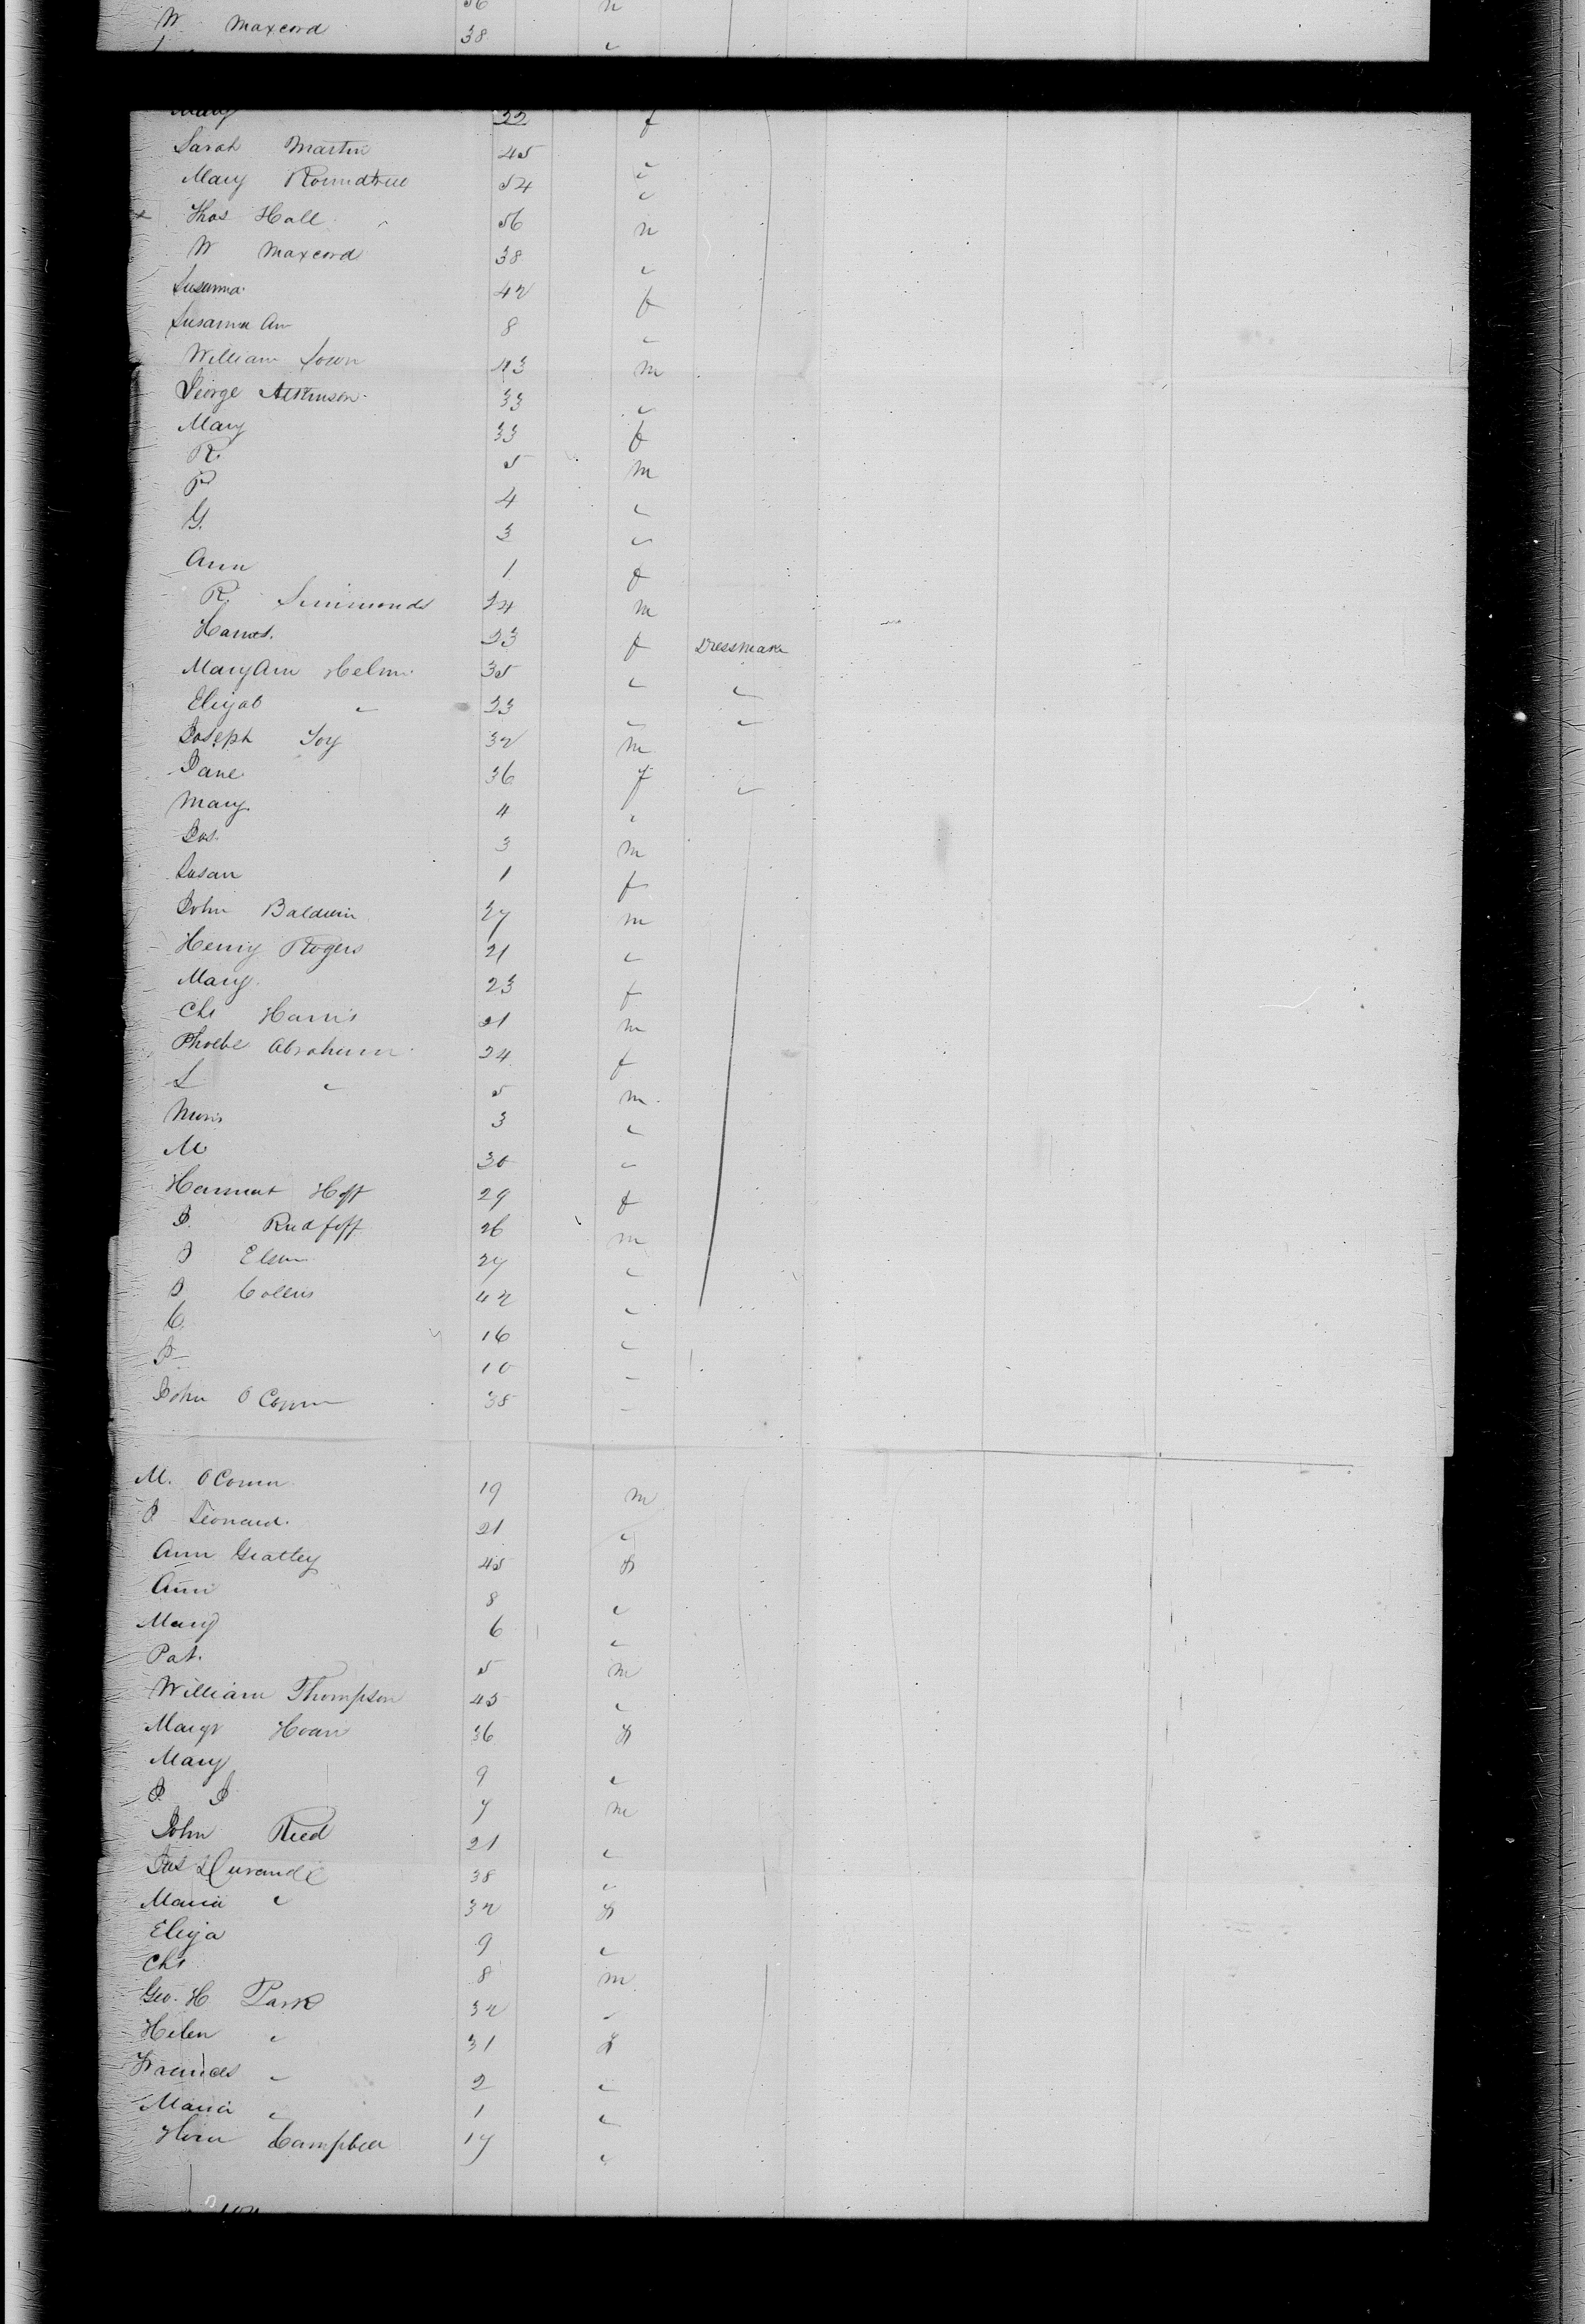 56 m
W Maxcord 38 "
Mary 32 f
Sarah Martin 45 "
Mary Roundtree 54 "
Thos Hall 56 m
W Maxcord 38 "
Susanna 42 f
Susanna An 8 "
William 43 m
George Atkinson 33 "
Mary 33 f
R. 5 m
P 4 "
G. 3 "
Ann 1 f
R. Simmonds 24 m
23 f Dressmaker
Mary Ann Helm 35 " "
Elizab " 23 " "
Joseph Joy 32 m
Jane 36 f "
Mary 4 "
Jos. 3 m
Susan 1 f
John Baldwin 27 m
Henry Rogers 21 "
Mary 23 f
Chs Harris 21 m
Phoebe Abraham 24 f
S " 5 m
3 "
M 30 "
29 f
J. 26 m
J Elson 27 "
J Collins 42 "
C. 16 "
J 10 "
John O Conn 38 "
M. O Conn 19 m
J Leonard 21 "
Ann Gratley 45 f
Ann 8 "
Mary 6 "
Pat. 5 m
William Thompson 45 "
Margt Hoan 36 f
Mary 9 "
J. J 7 m
John Reed 21 "
Jas 38 "
Maria " 32 f
Eliza 9 "
Chs 8 m
Geo. H Park 32 "
Helen " 31 f
Frances " 2 "
Maria " 1 "
Campbell 17 "